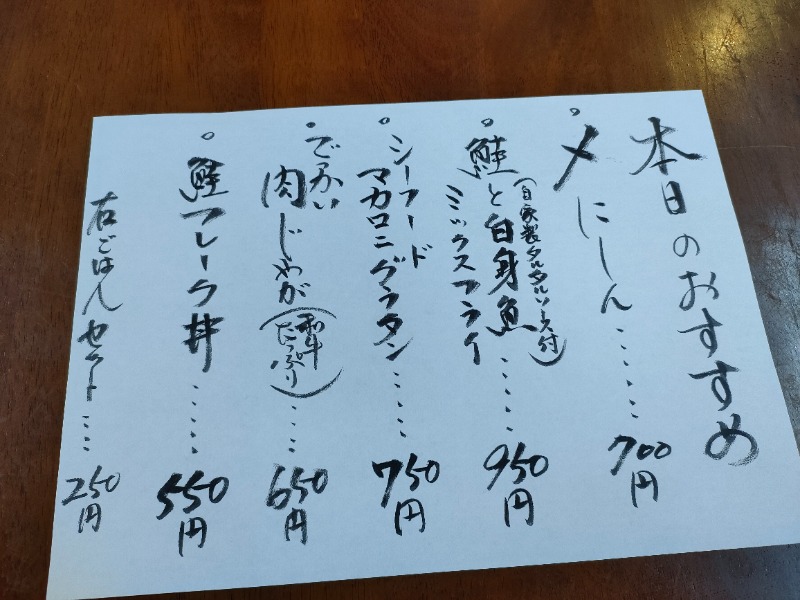 本日のおすすめ
〆にしん……700円
鮭と白身魚
(自家製タルタルソース付)
ミックスフライ……950円
シーフード
マカロニグラタン……750円
でっかい
肉じゃが(和牛たっぷり)……650円
鮭フレーク丼……550円
右ごはんセット……250円